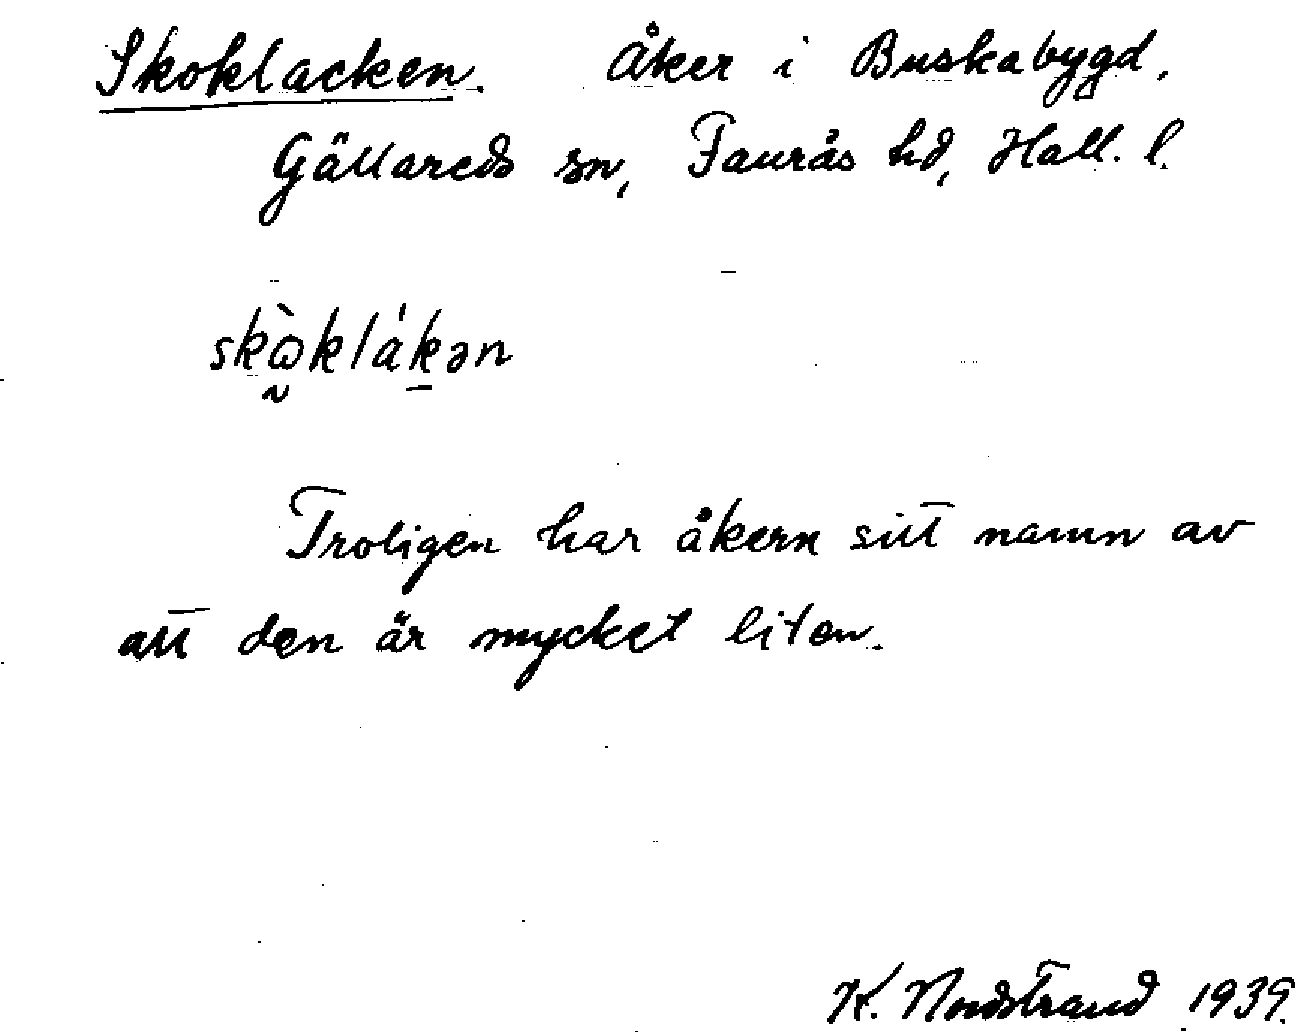 Skoklacken. Åker i Buskabygd,
Gällareds sn, Faurås hd, Hall. l.
skὼklákən
Troligen har åkern sitt namn av
att den är mycket liten.
K. Nordstrand 1939.